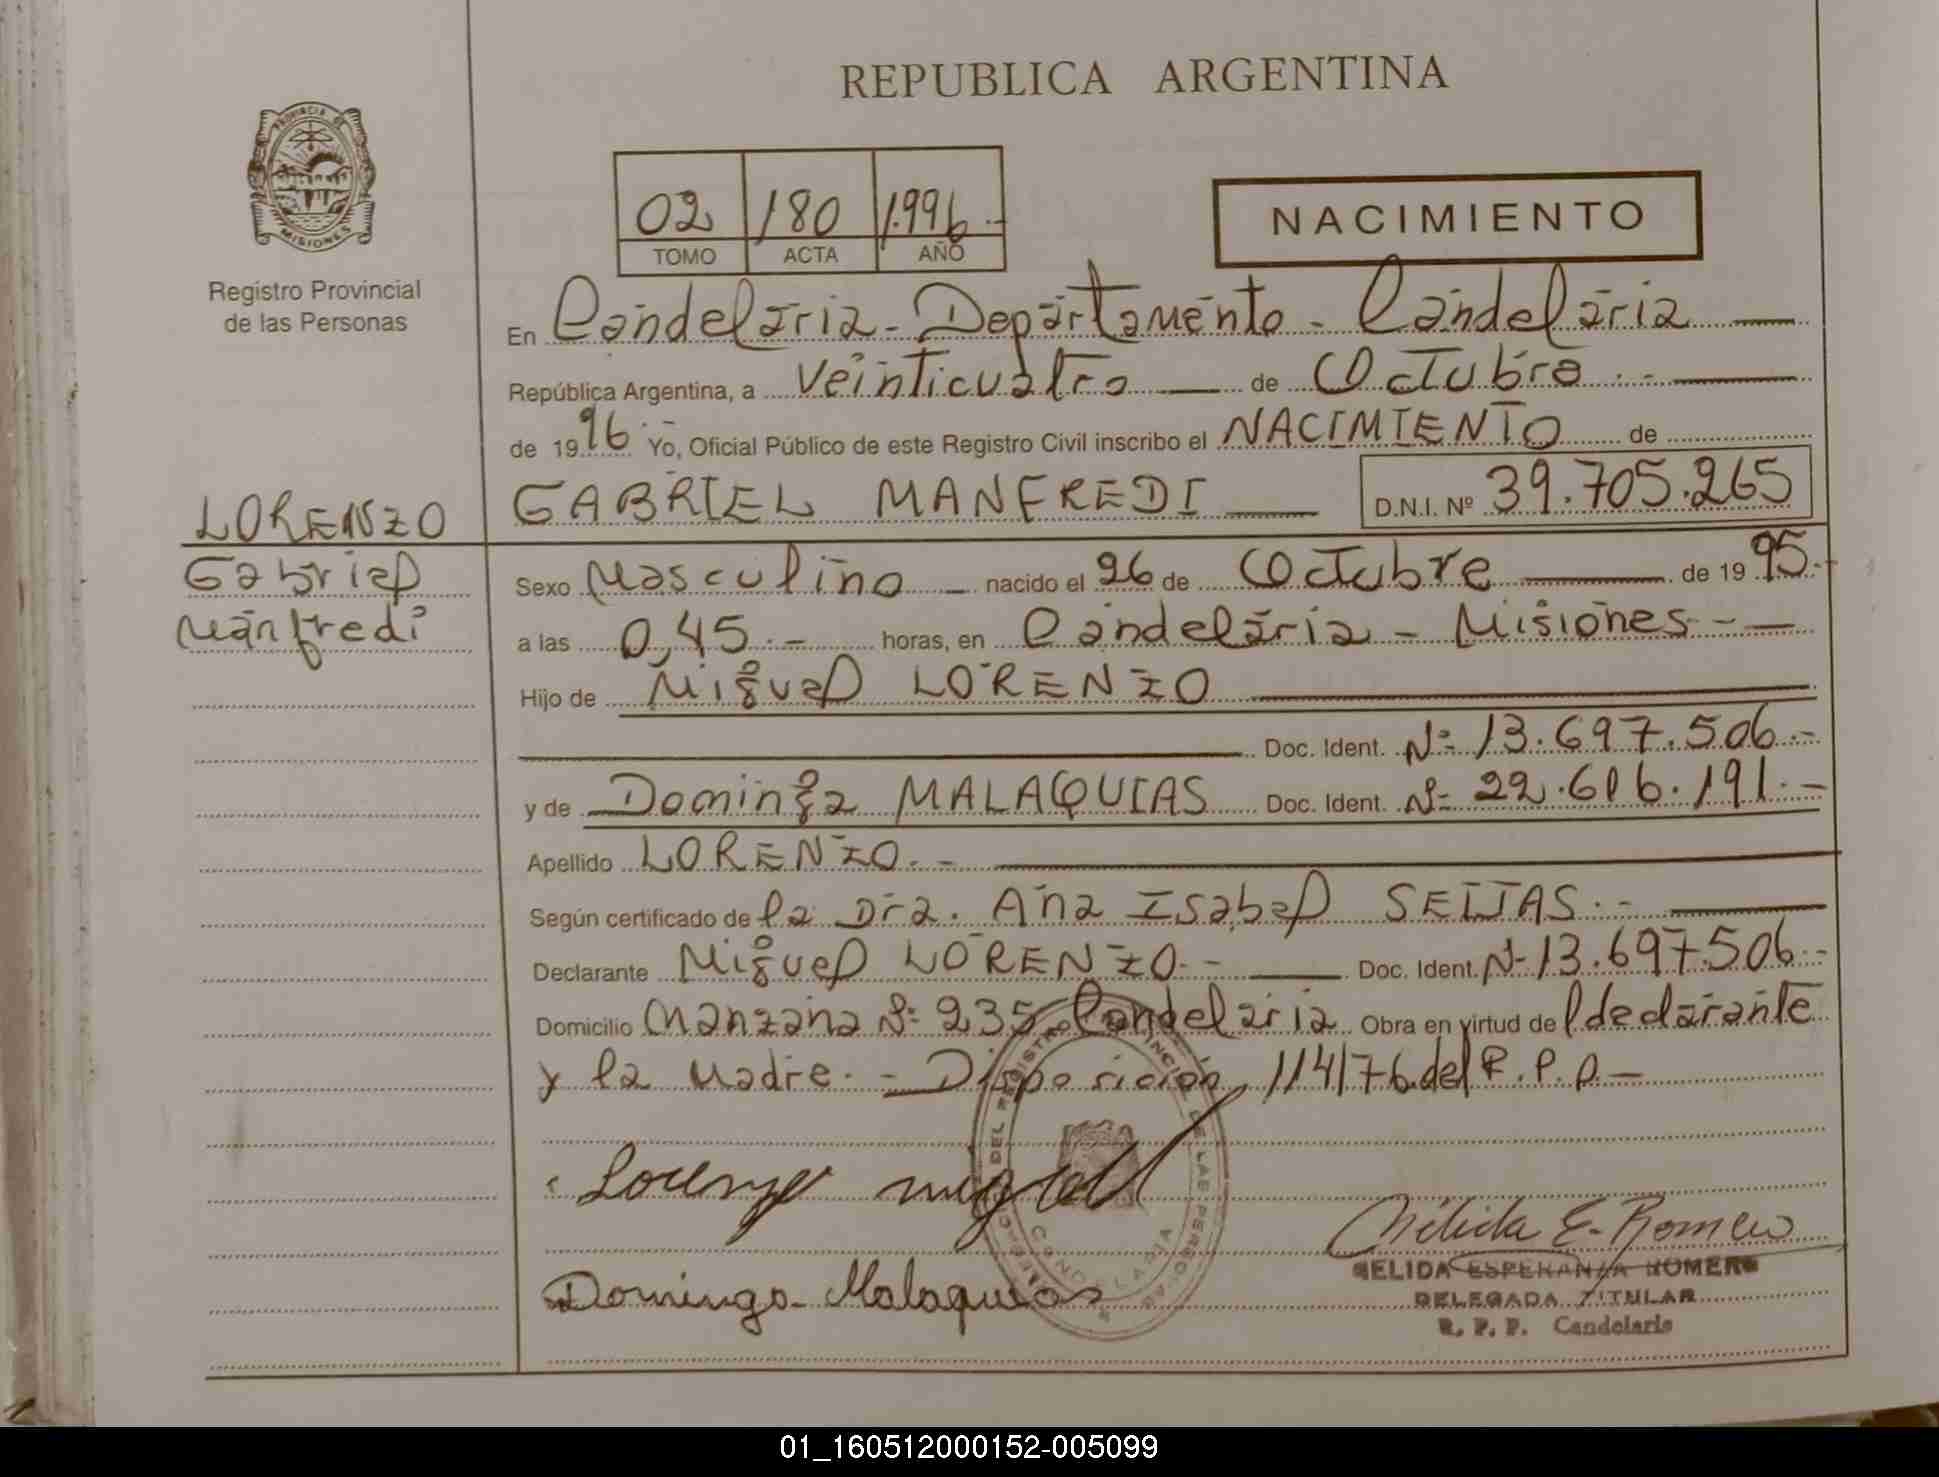 REPUBLICA ARGENTINA
PROVINCIA DE
MISIONES
Registro Provincial
de las Personas
02 180 1.996.-
TOMO ACTA AÑO
NACIMIENTO
En Candelaria - Departamento - Candelaria
República Argentina, a Veinticuatro de Octubre .-
de 1996.- Yo, Oficial Público de este Registro Civil inscribo el NACIMIENTO de
LORENZO
Gabriel
Manfredi
GABRIEL MANFREDI D.N.I. Nº 39.705.265
Sexo Masculino nacido el 26 de Octubre de 1995.-
a las 0,45.- horas, en Candelaria - Misiones --
Hijo de Miguel LORENZO
Doc. Ident. Nº 13.697.506.-
y de Dominga MALAQUIAS Doc. Ident. Nº 22.616.191.-
Apellido LORENZO.-
Según certificado de la Dra. Ana Isabel SEIJAS.-
Declarante Miguel LORENZO.- Doc. Ident. Nº 13.697.506.-
Domicilio Manzana Nº 235 Candelaria Obra en virtud de l declarante
y la Madre.- Disposición 114/76 del R.P.P.-
Lorenzo Miguel
Dominga Malaquias
Nélida E. Romero
NELIDA ESPERANZA ROMERO
DELEGADA TITULAR
R. P. P. Candelaria
CANDELARIA
01_160512000152-005099